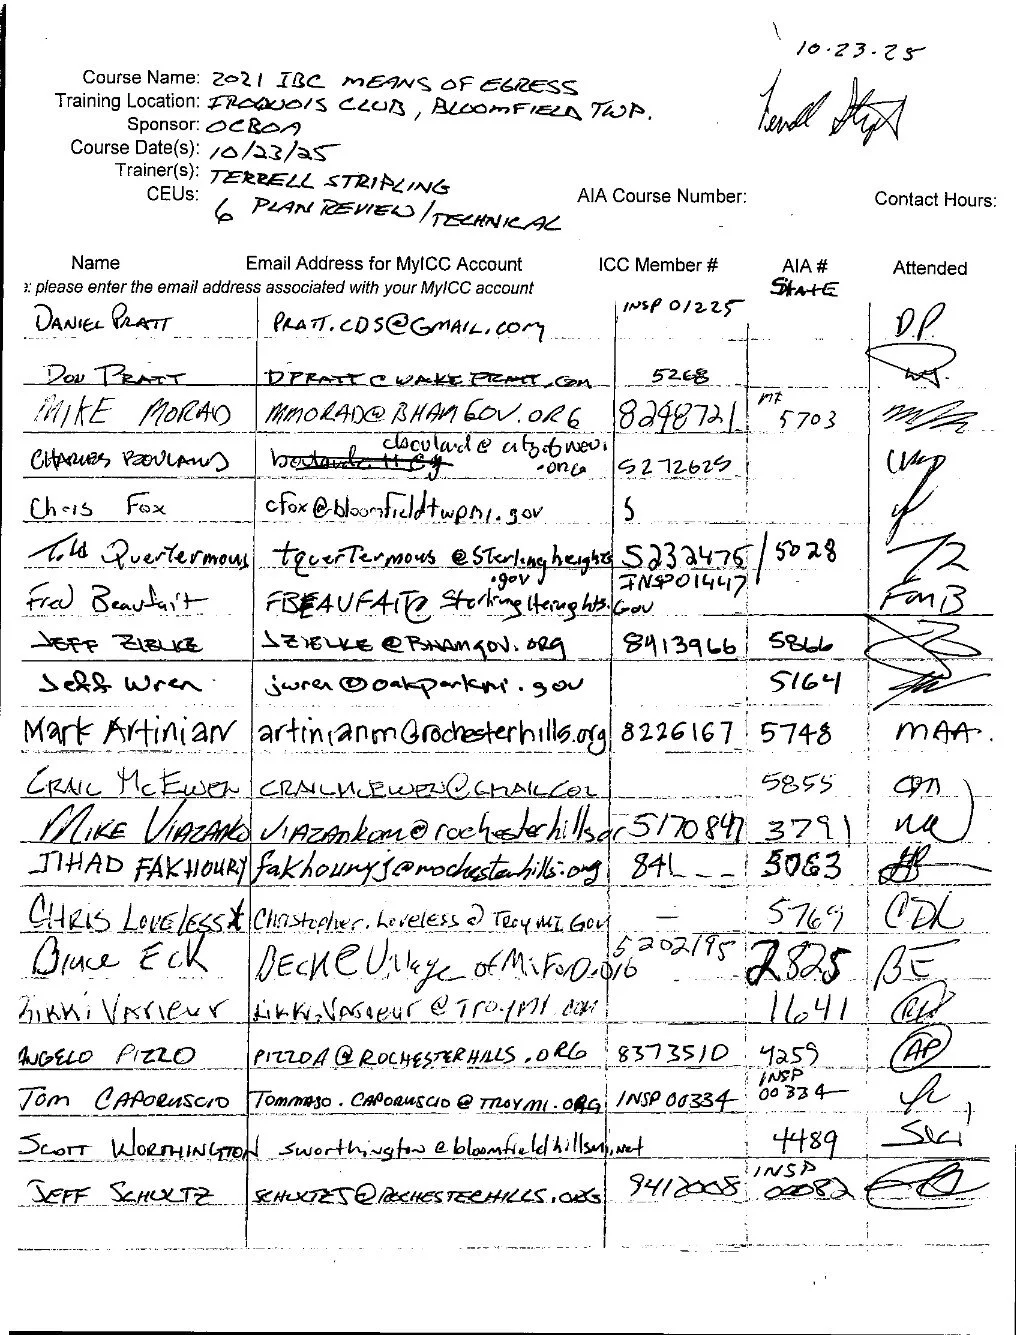 10·23·25
Course Name: 2021 IBC MEANS OF EGRESS
Training Location: IROQUOIS CLUB, BLOOMFIELD TWP.
Sponsor: OCBOA
Course Date(s): 10/23/25
Trainer(s): TERRELL STRIPLING
CEUs: 6 PLAN REVIEW/TECHNICAL AIA Course Number: Contact Hours:
Name Email Address for MyICC Account ICC Member # AIA # Attended
: please enter the email address associated with your MyICC account STATE
DANIEL PRATT PRATT.CDS@GMAIL.COM INSP 01225 DP.
DON PRATT 5268
MIKE MORAD MMORAD@BHAMGOV.ORG 8298721 5703
CHARLES cityofnovi.org 5272625
Chris Fox cfox@bloomfieldtwpmi.gov
Quertermous tquertermous@Sterlingheights.gov 5232475 / 5028
Fred Beaufait FBEAUFAIT@SterlingHeights.Gov INSP01447 FmB
JEFF ZIELKE JZIELKE@BHAMGOV.ORG 8413966 5866
Jeff Wren jwren@oakparkmi.gov 5164
Mark Artinian artinianm@rochesterhills.org 8226167 5748 MAA.
CRAIG McEWEN 5855
MIKE VIAZANKO viazankom@rochesterhills.or 5170847 3791
JIHAD FAKHOURY fakhouryj@rochesterhills.org 841_ _ _ 5063
CHRIS LOVELESS Christopher.Loveless@TroyMI.Gov — 5769 CDL
Bruce ECK BECK@VillageofMilford.org 5202195 2825 BE
1641
ANGELO PIZZO PIZZOA@ROCHESTERHILLS.ORG 8373510 4259 AP
Tom CAPORUSCIO TOMMASO.CAPORUSCIO@TROYMI.ORG INSP 00334 INSP 00334
SCOTT WORTHINGTON sworthington@bloomfieldhillsmi.net 4489
JEFF SCHULTZ SCHULTZJ@ROCHESTERHILLS.ORG 9412008 INSP 00082